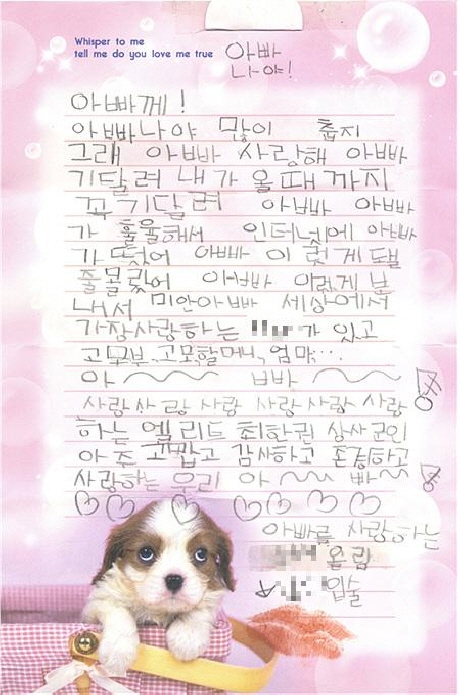 Whisper to me
tell me do you love me true
아빠
나야!
아빠께!
아빠나야 많이 춥지
그래 아빠 사랑해 아빠
기달려 내가 올때까지
꼬 기달려 아빠 아빠
가 훌융해서 인터넷에 아빠
가 떴어 아빠 이렇게 됄
줄몰랐어 아빠 이렇게 보
내서 미안아빠 세상에서
가장사랑하는 가 있고
고모부, 고모할머니, 엄마...
아~~ 빠~~
사랑사랑 사랑 사랑사랑 사랑
하는 엘리트 최한권 상사 군인
아주 고맙고 감사하고 존경하고
사랑하는 우리 아~~ 빠~~
아빠를 사랑하는
올림
입술